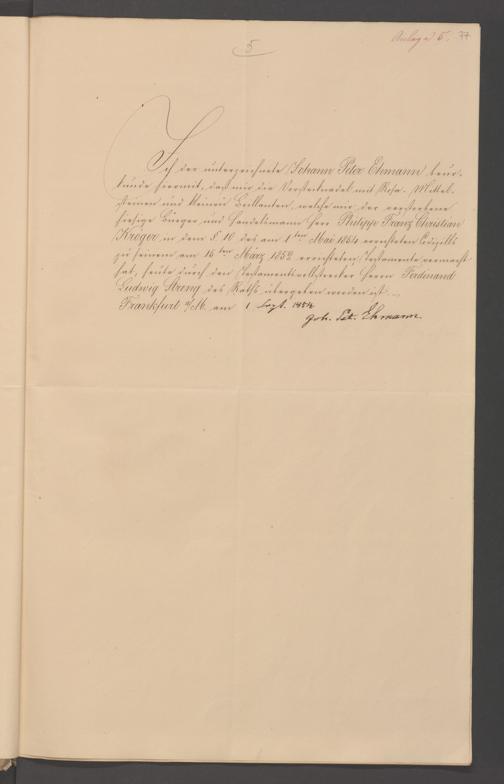 Anlage 5. 77
5
Ich der unterzeichnete Johann Peter Ehmann beur-
kunde hiermit, daß mir die Vorstecknadel mit Rosa-Mittel-
steinen und kleinen Brillanten, welche mir der verstorbene
hiesige Bürger und Handelsmann Herr Philipp Franz Christian
Kröger in dem § 10 des am 1ten Mai 1854 errichteten Codizills
zu seinem am 16ten März 1852 errichteten Testamente vermacht
hat, heute durch den Testamentsvollstrecker Herrn Ferdinand
Ludwig des Raths übergeben worden ist.
Frankfurt a/M. am 1 Sept. 1854
Joh. Pet. Ehmann.